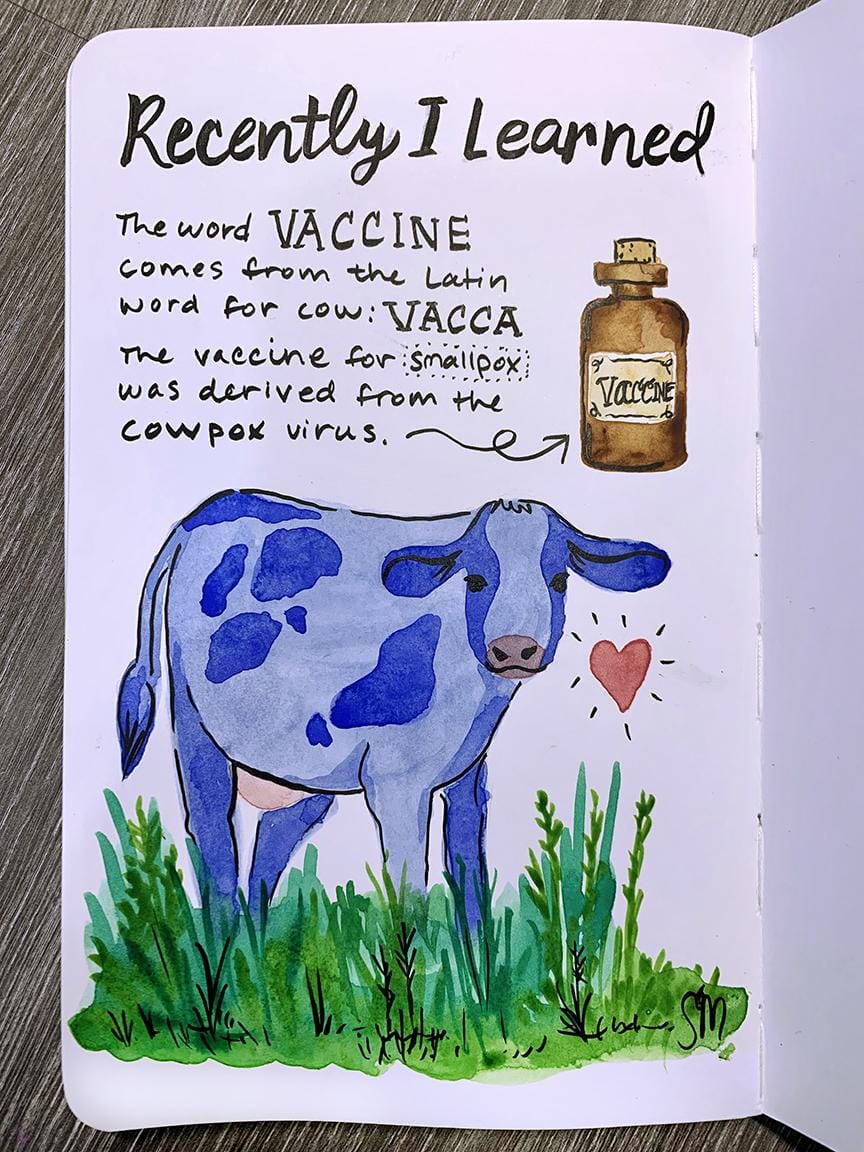 Recently I Learned
The word VACCINE
comes from the Latin
word for cow: VACCA
The vaccine for smallpox
was derived from the
cowpox virus.
VACCINE
SM